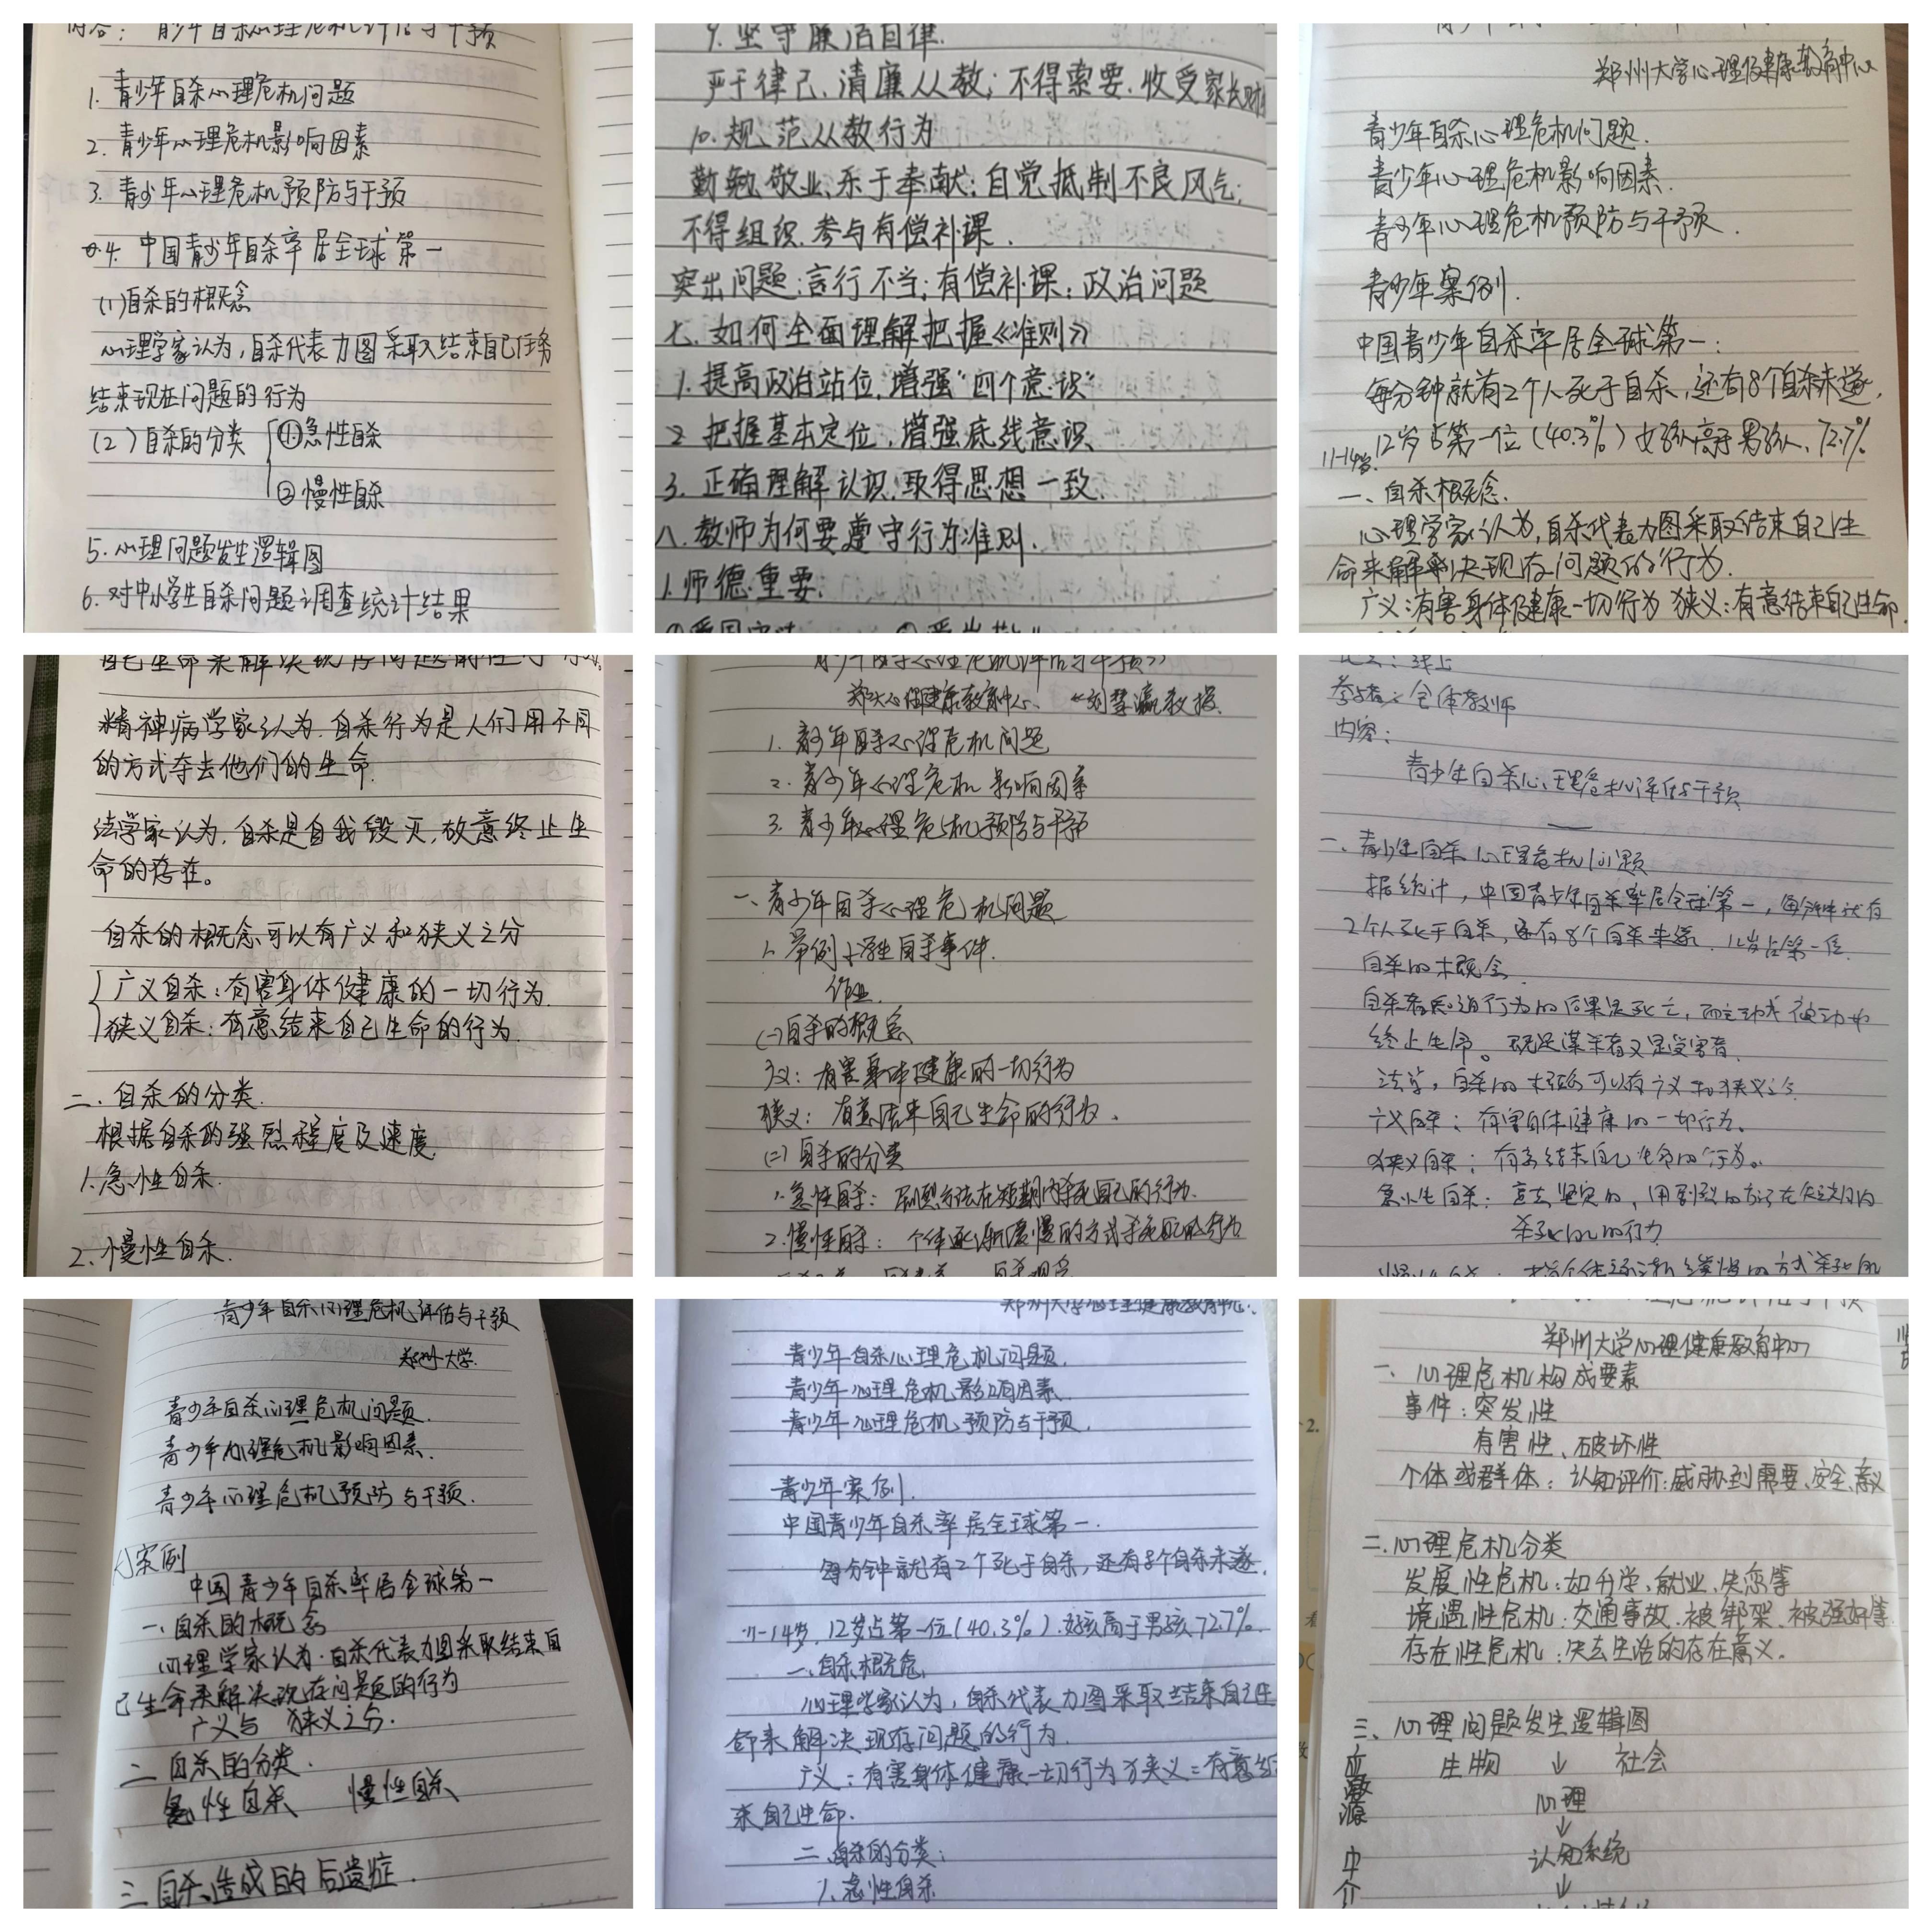 内容：青少年自杀心理危机评估与干预
1. 青少年自杀心理危机问题
2. 青少年心理危机影响因素
3. 青少年心理危机预防与干预
4. 中国青少年自杀率居全球第一
(1)自杀的概念
心理学家认为，自杀代表力图采取结束自己任务
结束现在问题的行为
(2)自杀的分类 ①急性自杀
②慢性自杀
5. 心理问题发生逻辑图
6. 对中小学生自杀问题调查统计结果
9. 坚守廉洁自律.
严于律己、清廉从教；不得索要、收受家长财
10. 规范从教行为
勤勉敬业，乐于奉献；自觉抵制不良风气；
不得组织、参与有偿补课.
突出问题：言行不当；有偿补课；政治问题
七. 如何全面理解把握《准则》
1. 提高政治站位，增强“四个意识”
2 把握基本定位，增强底线意识
3. 正确理解认识，取得思想一致.
八. 教师为何要遵守行为准则.
1. 师德重要:
郑州大学心理健康教育中心
青少年自杀心理危机问题.
青少年心理危机影响因素.
青少年心理危机预防与干预.
青少年案例.
中国青少年自杀率居全球第一:
每分钟就有2个人死于自杀，还有8个自杀未遂.
11-14岁. 12岁占第一位(40.3%)女孩高于男孩、72.7%
一、自杀概念.
心理学家认为，自杀代表力图采取结束自己生
命来解决现存问题的行为.
广义：有害身体健康一切行为 狭义：有意结束自己生命.
自己生命来解决现存问题的行为.
精神病学家认为. 自杀行为是人们用不同
的方式夺去他们的生命.
法学家认为，自杀是自我毁灭，故意终止生
命的存在。
自杀的概念可以有广义和狭义之分
广义自杀：有害身体健康的一切行为.
狭义自杀：有意结束自己生命的行为.
二. 自杀的分类.
根据自杀的强烈程度及速度
1. 急性自杀.
2. 慢性自杀.
青少年自杀心理危机评估与干预》
郑大心理健康教育中心、 刘慧瀛教授
1. 青少年自杀心理危机问题
2. 青少年心理危机影响因素
3. 青少年心理危机预防与干预
一、青少年自杀心理危机问题
1. 举例小学生自杀事件.
作业.
(一)自杀的概念
广义：有害身体健康的一切行为
狭义：有意结束自己生命的行为.
(二)自杀的分类
1. 急性自杀：剧烈方法在短期内杀死自己的行为.
2. 慢性自杀：个体逐渐缓慢的方式杀死自己的行为
线上
参与者：全体教师
内容：
青少年自杀心理危机评估与干预
一、青少年自杀心理危机问题
据统计，中国青少年自杀率居全球第一，每分钟就有
2个人死于自杀，还有8个自杀未遂. 12岁占第一位.
自杀的概念
自杀者知道行为的后果是死亡，而主动或被动地
终止生命。既是谋杀者又是受害者.
法学，自杀的概念可以有广义和狭义之分
广义自杀：有害身体健康的一切行为。
狭义自杀：有意结束自己生命的行为。
急性自杀：意志坚定的，用剧烈的方法在短时内
杀死自己的行为
慢性自杀：指个体逐渐缓慢的方式杀死自己
青少年自杀心理危机评估与干预
郑州大学.
青少年自杀心理危机问题.
青少年心理危机影响因素.
青少年心理危机预防与干预.
案例
中国青少年自杀率居全球第一
一、自杀的概念
心理学家认为·自杀代表力图采取结束自
己生命来解决现在问题的行为
广义与 狭义之分.
二 自杀的分类.
急性自杀 慢性自杀
三 自杀造成的后遗症.
郑州大学心理健康教育中心.
青少年自杀心理危机问题.
青少年心理危机影响因素.
青少年心理危机预防与干预.
青少年案例.
中国青少年自杀率居全球第一.
每分钟就有2个死于自杀，还有8个自杀未遂.
11-14岁. 12岁占第一位(40.3%).女孩高于男孩72.7%.
一、自杀概念.
心理学家认为，自杀代表力图采取结束自己生
命来解决现存问题的行为.
广义：有害身体健康一切行为 狭义：有意结
束自己生命.
二、自杀的分类：
1. 急性自杀
郑州大学心理健康教育中心
一、心理危机构成要素
事件：突发性
有害性、破坏性
个体或群体：认知评价：威胁到需要、安全、意义
二. 心理危机分类
发展性危机：如升学、就业、失恋等
境遇性危机：交通事故、被绑架、被强奸等
存在性危机：失去生活的存在意义.
三、心理问题发生逻辑图
应激源 生物 ↓ 社会
心理
↓
中介 认知系统
↓